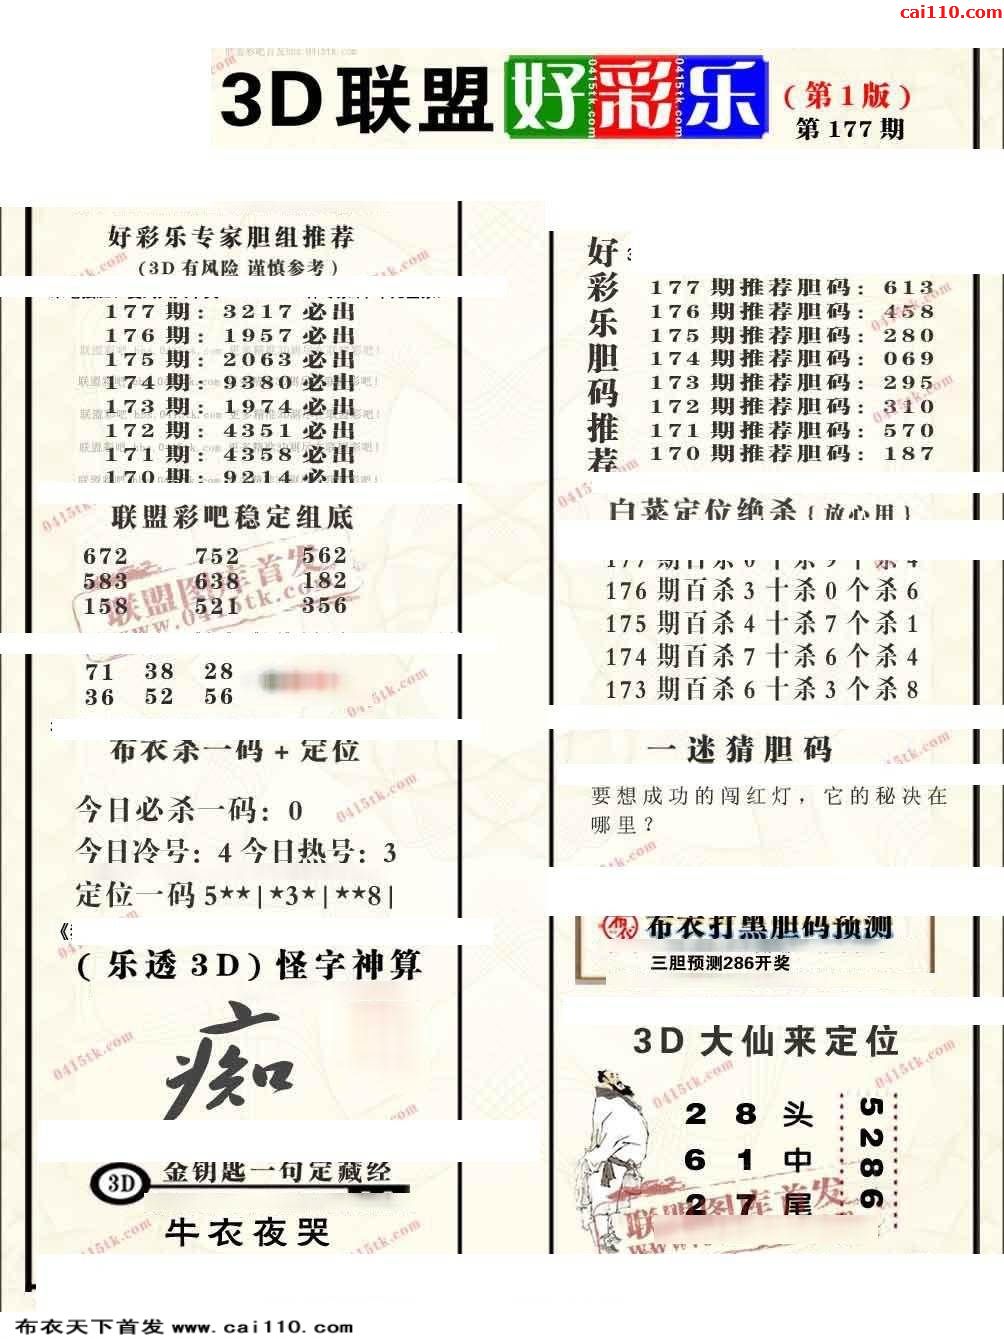 cai110.com
3D联盟好彩乐
(第1版)
第177期
好彩乐专家胆组推荐
(3D有风险 谨慎参考)
177期:3217必出
176期:1957必出
175期:2063必出
174期:9380必出
173期:1974必出
172期:4351必出
171期:4358必出
170期:9214必出
联盟彩吧稳定组底
672 752 562
583 638 182
158 521 356
71 38 28
36 52 56
布衣杀一码+定位
今日必杀一码:0
今日冷号:4今日热号:3
定位一码5**|*3*|**8|
(乐透3D)怪字神算
痴
3D 金钥匙一句定藏经
牛衣夜哭
好彩乐胆码推荐
177期推荐胆码:613
176期推荐胆码:458
175期推荐胆码:280
174期推荐胆码:069
173期推荐胆码:295
172期推荐胆码:310
171期推荐胆码:570
170期推荐胆码:187
白菜定位绝杀{放心用}
177期百杀0十杀9个杀4
176期百杀3十杀0个杀6
175期百杀4十杀7个杀1
174期百杀7十杀6个杀4
173期百杀6十杀3个杀8
一迷猜胆码
要想成功的闯红灯，它的秘决在
哪里?
布衣打黑胆码预测
三胆预测286开奖
3D大仙来定位
2 8 头
6 1 中
2 7 尾
5286
布衣天下首发 www.cai110.com